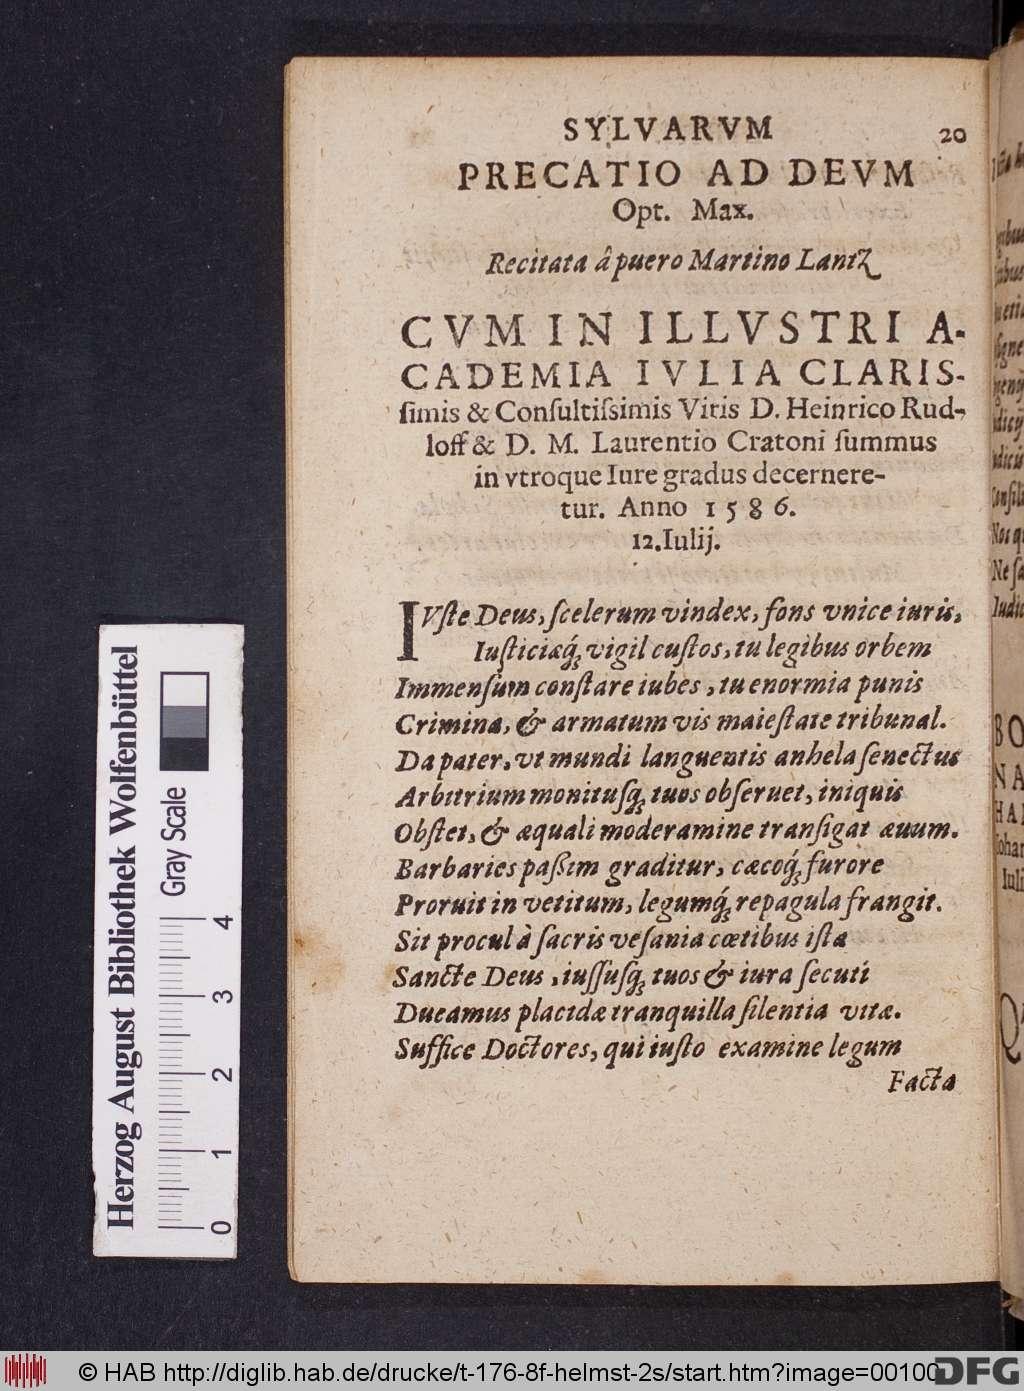 SYLVARVM 20
PRECATIO AD DEVM
Opt. Max.
Recitata â puero Martino Lantz
CVM IN ILLVSTRI A-
CADEMIA IVLIA CLARIS-
ſimis & Conſultiſsimis Viris D. Heinrico Rud-
loff & D. M. Laurentio Cratoni ſummus
in vtroque Iure gradus decernere-
tur. Anno 1586.
12. Iulij.
IVſte Deus, ſcelerum vindex, fons vnice iuris,
Iuſticiæq́; vigil cuſtos, tu legibus orbem
Immenſum conſtare iubes, tu enormia punis
Crimina, & armatum vis maieſtate tribunal.
Da pater, vt mundi languentis anhela ſenectus
Arbitrium monitusq́; tuos obſeruet, iniquis
Obſtet, & æquali moderamine tranſigat æuum.
Barbaries paßim graditur, cæcoq́; furore
Proruit in vetitum, legumq́; repagula frangit.
Sit procul à ſacris veſania cœtibus iſta
Sancte Deus, iuſſusq́; tuos & iura ſecuti
Ducamus placidæ tranquilla ſilentia vitæ.
Suffice Doctores, qui iuſto examine legum
Facta
Herzog August Bibliothek Wolfenbüttel
Gray Scale
0 1 2 3 4
© HAB http://diglib.hab.de/drucke/t-176-8f-helmst-2s/start.htm?image=00100
DFG